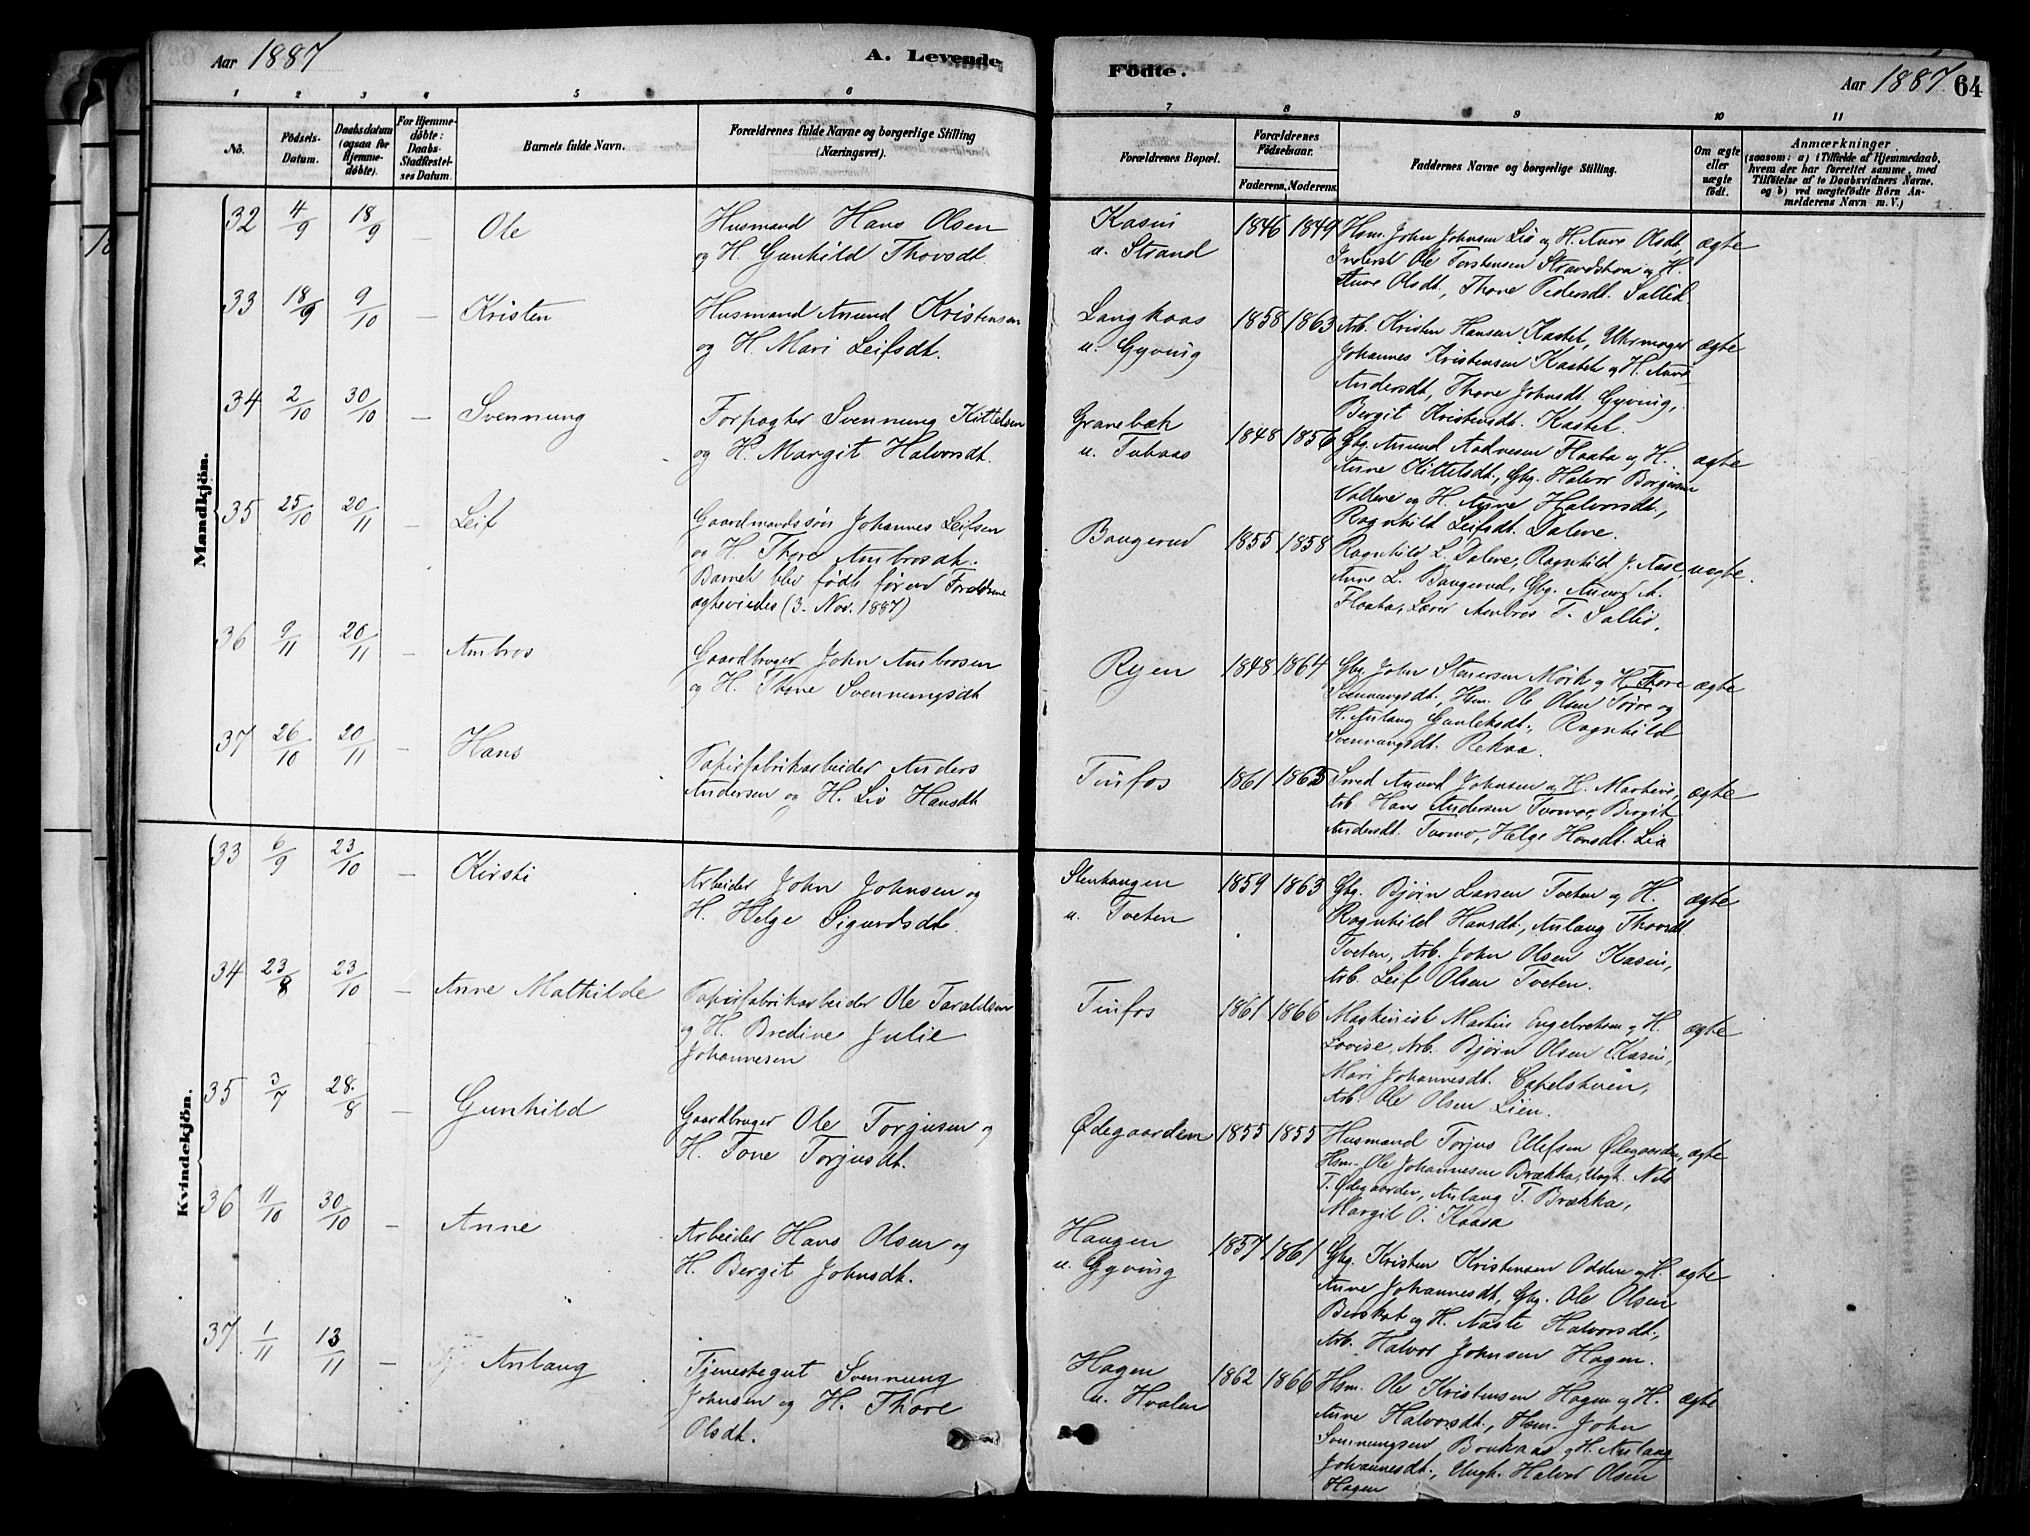 Aar 1887
A. Levende
Fødte.
Aar 1887.
64
1 2 3 4 5 6
7 8 9 10 11
No.
Fødsels-Datum.
Daabsdatum (ogsaa for Hjemmedøbte).
For Hjemmedøbte: Daabs-Stadfæstelses Datum.
Barnets fulde Navn.
Forældrenes fulde Navne og borgerlige Stilling (Næringsvei).
Forældrenes Bopæl.
Forældrenes Fødselsaar.
Faderens. Moderens.
Faddernes Navne og borgerlige Stilling.
Om ægte eller uægte født.
Anmærkninger
(saasom: a) i Tilfælde af Hjemmedaab, hvem der har forrettet samme, med Tilføielse af to Daabsvidners Navne, og b) ved uægtefødte Børn Anmelderens Navn m. V.)
Mandkjøn.
32 4/9 18/9 — Ole
Husmand Hans Olsen
og H. Gunhild Thovsdt
Kasin
u. Strand
1846 1849
Hsm. John Johnsen Lió og H. Anne Olsdt,
Inderst Ole Torstensen Strandstoa og H.
Anne Olsdt., Thone Pedersdt. Sallid
ægte
33 18/9 9/10 — Kristen
Husmand Amund Kristensen
og H. Mari Leifsdt.
Langkaas
u. Gyving
1858 1863
Arb. Kristen Hansen Kastet, Uhrmager
Johannes Kristensen Kastet og H. Anne
Andersdt, Thone Johnsdt. Gyving,
Bergit Kristensdt. Kastet.
ægte
34 2/10 30/10 — Svennung
Forpagter Svennung Kittelsen
og H. Margit Halvorsdt.
Granebæk
u. Tubaas
1848 1856
Gbg. Amund Aadnesen Flaata og H.
Anne Kittelsdt., Gbg. Halvor Borgersen
Vallene og H. Anne Halvorsdt.,
Ragnhild Leifsdt. Dalene.
ægte
35 25/10 20/11 — Leif
Gaardmandssøn Johannes Leifsen
og H. Thone Ambrosdt.
Barnet blev født førend Forældrene
ægteviedes (3. Nov. 1887)
Baugerud
1855 1858
Ragnhild L. Dalene, Ragnhild J. Aase,
Anne L. Baugerud, Gbg. Amund A.
Flaata, Lærer Ambros T. Sallid.
uægte.
36 9/11 20/11 — Ambros
Gaardbruger John Ambrosen
og H. Thone Svennungsdt
Ryen
1848 1864
Gbg. John Stenersen Mørk og H. Thore
Svennungsdt., Hsm. Ole Olsen Toire og
H. Aslaug Gunleksdt., Ragnhild
Svennungsdt. Rekaa.
ægte
37 26/10 20/11 — Hans
Papirfabrikarbeider Anders
Andersen og H. Liv Hansdt
Tinfos
1861 1865
Smed Amund Johnsen og H. Martine,
Arb. Hans Andersen Tvermo, Bergit
Andersdt. Tvermo, Helge Hansdt. Lia
ægte
Kvindekjøn.
33 6/9 23/10 — Kirsti
Arbeider John Johnsen og
H. Helge Sigurdsdt.
Stenhaugen
u. Tveten
1859 1863
Gbg. Bjørn Larsen Tveten og H.
Ragnhild Hansdt., Aslaug Thovsdt
Tveten, Arb. John Olsen Kasin,
Arb. Leif Olsen Tveten.
ægte
34 23/8 23/10 — Anne Mathilde
Papirfabrikarbeider Ole Taraldsen
og H. Bredine Julie
Johannesen
Tinfos
1861 1866
Maskinist Martin Engebretsen og H.
Lovise, Arb. Bjørn Olsen Kasin,
Mari Johannesdt. Capelstuen,
Arb. Ole Olsen Lien.
ægte
35 3/7 28/8 — Gunhild
Gaardbruger Ole Torjusen og
H. Tone Torjusdt.
Ødegaarden
1855 1855
Husmand Torjus Ellefsen Ødegaarden,
Hsm. Ole Johannesen Brækka, Ungk. Nils
T. Ødegaarden, Aslaug T. Brækka,
Margit O. Kaasa
ægte
36 11/10 30/10 — Anne
Arbeider Hans Olsen og
H. Bergit Johnsdt.
Haugen
u. Gyving
1857 1861
Gbg. Kristen Kristensen Odden og H.
Anne Johannesdt, Gbg. Ole Olsen
Berskot og H. Aaste Halvorsdt.,
Arb. Halvor Johnsen Hagen.
ægte
37 1/11 13/11 — Aslaug
Tjenestegut Svennung
Johnsen og H. Thore
Olsdt.
Hagen
u. Hvalen
1862 1866
Hsm. Ole Kristensen Hagen og H.
Anne Halvorsdt., Hsm. John
Svennungsen Brukaas og H. Aslaug
Johannesdt., Ungk. Halvor Olsen
Hagen
ægte